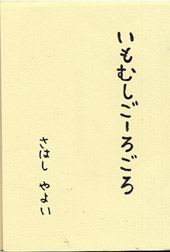 いもむしごーろごろ
さはし やよい